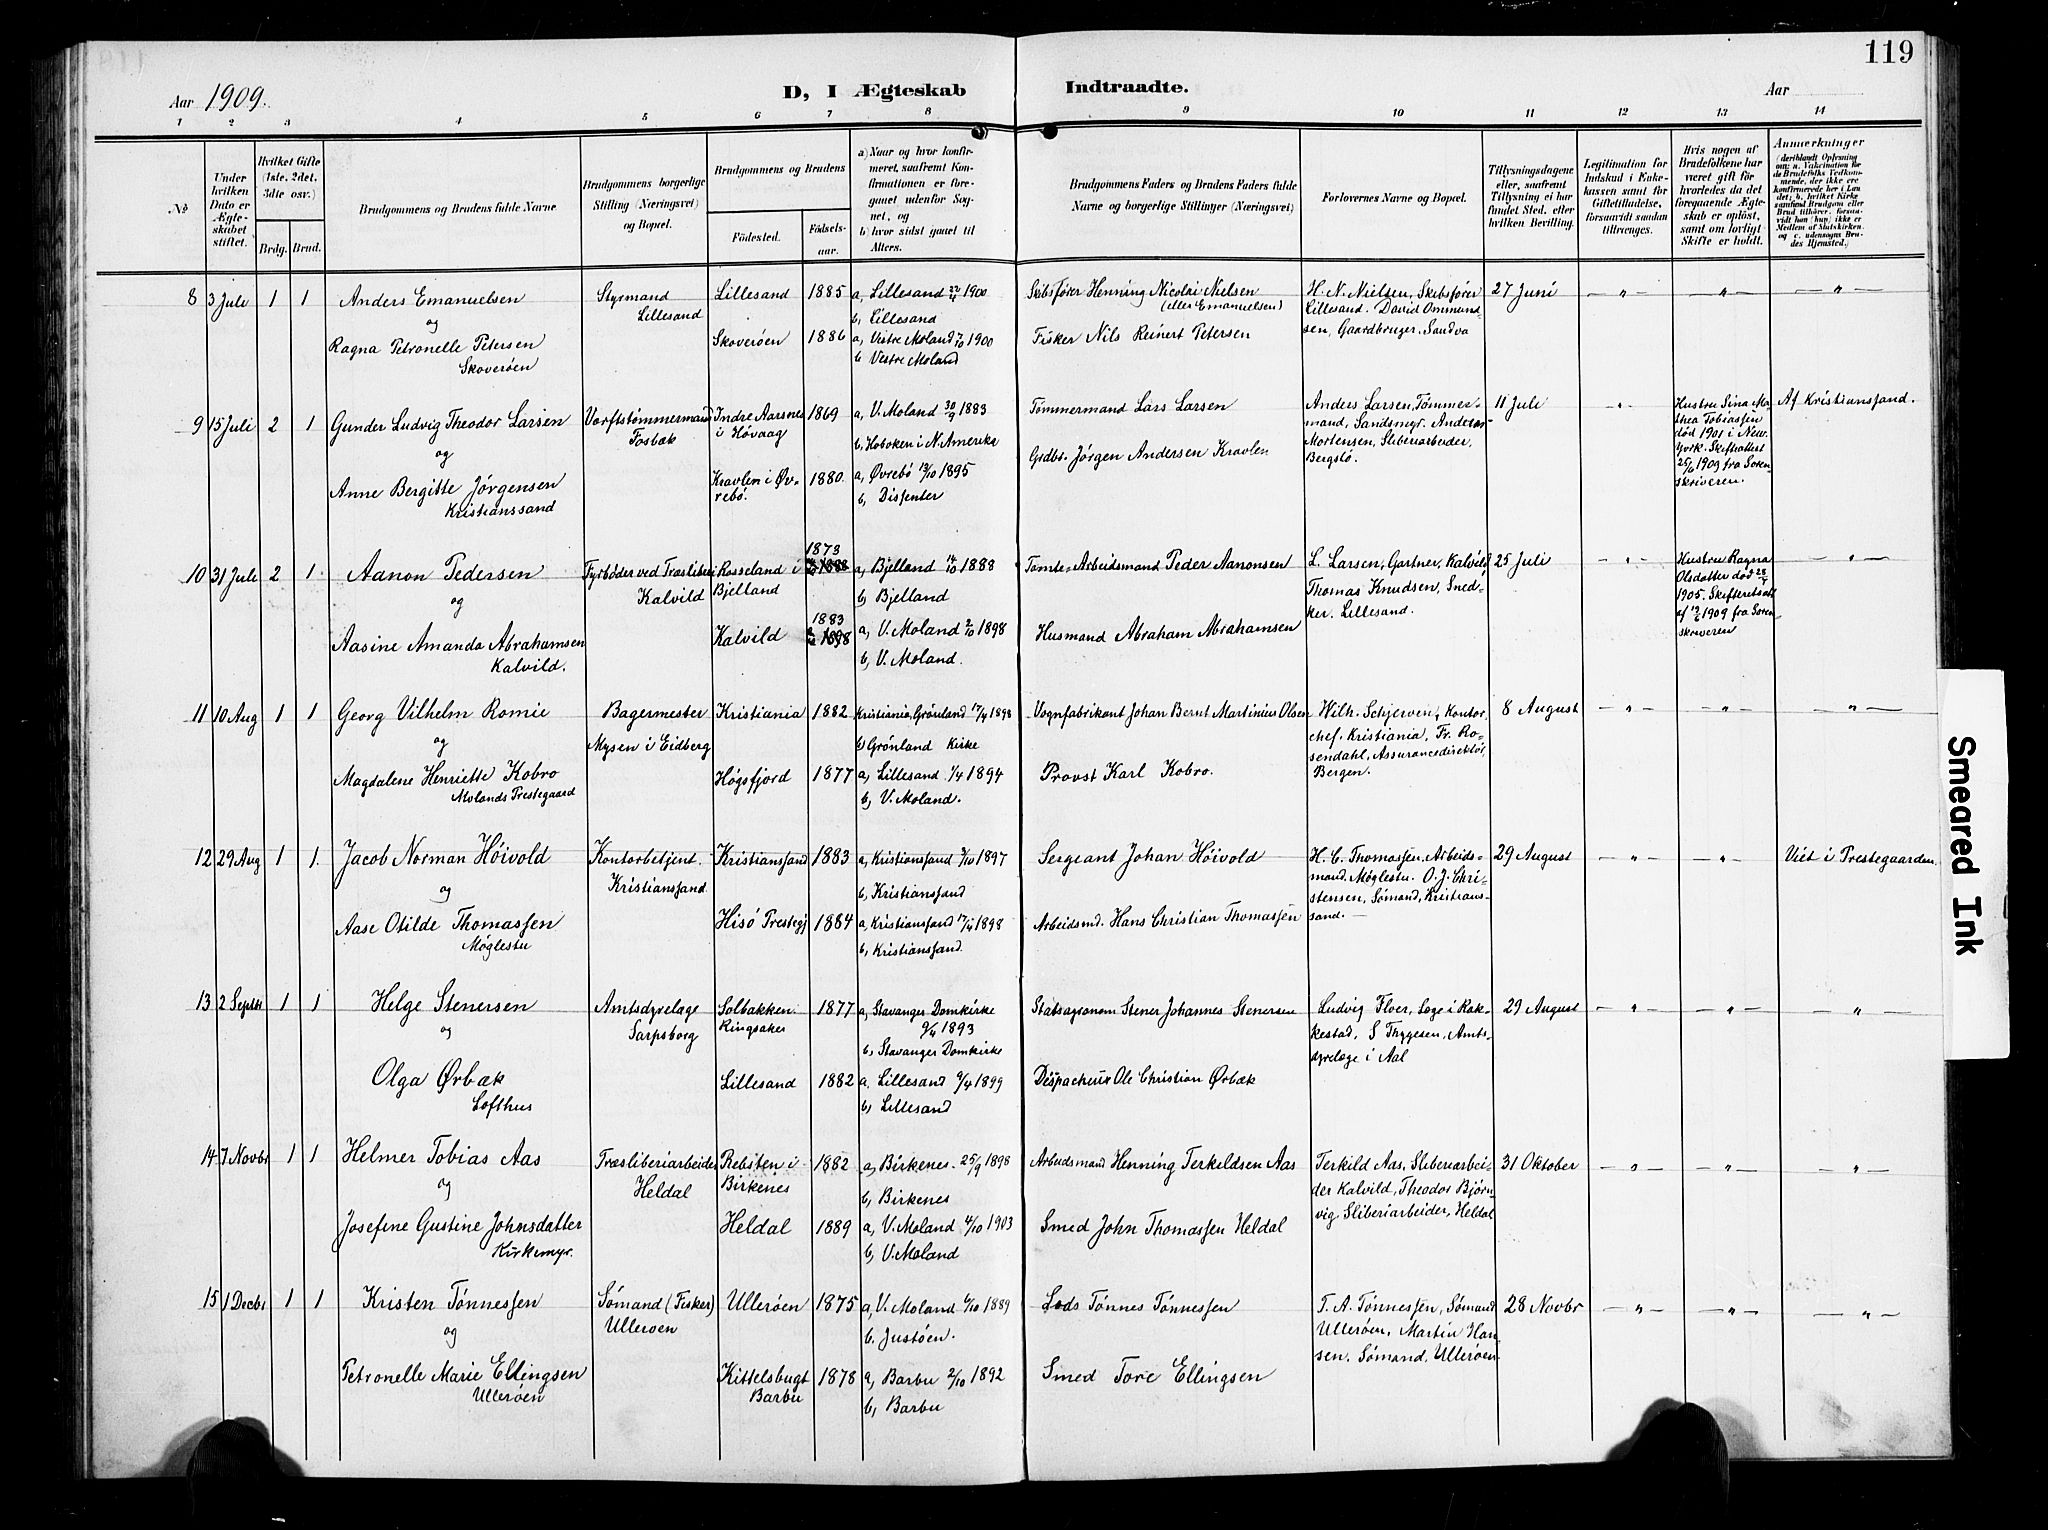 119
Aar 1909.
D, I Ægteskab Indtraadte.
Aar
1 2 3 4 5 6 7 8 9 10 11 12 13 14
№
Under hvilken Dato er Ægteskabet stiftet.
Hvilket Gifte (1ste, 2det, 3dte osv.)
Brdg. Brud.
Brudgommens og Brudens fulde Navne
Brudgommens borgerlige Stilling (Næringsvei) og Bopæl.
Brudgommens og Brudens
Fødested. Fødselsaar.
a) Naar og hvor konfirmeret, saafremt Konfirmationen er foregaaet udenfor Sognet, og
b) hvor sidst gaaet til Alters.
Brudgommens Faders og Brudens Faders fulde Navne og borgerlige Stillinger (Næringsvei)
Forlovernes Navne og Bopæl.
Tillysningsdagene eller, saafremt Tillysning ei har fundet Sted, efter hvilken Bevilling.
Legitimation for Indskud i Enkekassen samt for Giftetilladelse, forsaavidt saadan tiltrænges.
Hvis nogen af Brudefolkene har været gift før hvorledes da det foregaaende Ægteskab er opløst, samt om lovligt Skifte er holdt.
Anmærkninger
(deriblandt Oplysning om: a. Vakcination for de Brudefolks Vedkommende, der ikke ere konfirmerede her i Landet; b. hvilket Kirkesamfund Brudgom eller Brud tilhører, forsaavidt han (hun) ikke er Medlem af Statskirken, og c. udensogns Brudes Hjemsted.)
8 3 Juli 1 1 Anders Emanuelsen
og
Ragna Petronelle Petersen
Skoverøen
Styrmand
Lillesand
Lillesand 1885 a, Lillesand 22/4 1900
b, Lillesand
Skoverøen 1886 a, Vestre Moland 7/10 1900
b Vestre Moland
Skibsfører Henning Nicolai Nielsen
(eller Emanuelsen)
Fisker Nils Reinert Petersen
H. N. Nielsen, Skibsfører
Lillesand. David Ommundsen, Gaardbruger. Sandva
27 Juni — „ — — „ — — „ —
9 15 Juli 2 1 Gunder Ludvig Theodor Larsen
og
Anne Bergitte Jörgensen
Kristianssand
Værftstømmermand
Fosbæk
Indre Aarsnes
i Høvaag
1869 a, V. Moland 30/9 1883
b, Hoboken i N. Amerika
Kravlen i Øvrebø.
1880. a, Øvrebø 13/10 1895
b, Dissenter
Tømmermand Lars Larsen
Grdbr. Jörgen Andersen Kravlen
Anders Larsen, Tømmermand, Sandsmyr. Anders
Mortensen, Sliberiarbeider,
Bergstø.
11 Juli — „ —
Hustru Sina Mathea Tobiassen
død 1901 i New
York. Skifteattest
25/6 1909 fra Sorenskriveren.
Af Kristianssand.
10 31 Juli 2 1. Aanon Pedersen
og
Aasine Amanda Abrahamsen
Kalvild.
Fyrbøder ved Træsliberi
Kalvild
Rosseland i
Bjelland
1873
1888
a, Bjelland 14/10 1888
b, Bjelland
Kalvild
1883
1898
a, V. Moland 2/10 1898
b, V. Moland.
Tomte-Arbeidsmand Peder Aanonsen
Husmand Abraham Abrahamsen
L. Larsen, Gartner, Kalvild
Thomas Knudsen, Snedker. Lillesand.
25 Juli — „ —
Hustru Ragna
Olsdatter død
1905. Skifteretsatt.
af 12/6 1909 fra Sorenskriveren
— „ —
11 10 Aug 1 1 Georg Vilhelm Romie
og
Magdalene Henriette Kobro
Molands Prestegaard
Bagermester
Mysen i Eidberg
Kristiania 1882 Kristiania, Grønland 17/4 1898
b) Grønland Kirke
Høgsfjord 1877 a, Lillesand 1/4 1894
b, V. Moland.
Vognfabrikant Johan Bernt Martinius Olsen
Provst Karl Kobro.
Wilh. Schjerven, Kontorchef. Kristiania, Fr. Rosendahl, Assurancedirektør,
Bergen.
8 August — „ — — „ — — „ —
12 29 Aug 1 1. Jacob Norman Høivold
og
Aase Otilde Thomassen
Møglestu
Kontorbetjent.
Kristianssand.
Kristianssand 1883 a, Kristianssand 3/10 1897
b, Kristianssand
Hisø Prestegj 1884 a, Kristianssand 17/4 1898
b, Kristianssand.
Sergeant Johan Høivold
Arbeidsmd. Hans Christian Thomassen
H. C. Thomassen, Arbeidsmand. Møglestu. O. J. Christensen, Sømand, Kristianssand. —
29 August — „ — — „ — Viet i Prestegaarden.
13 2 Septbr 1 1 Helge Stenersen
og
Olga Ørbæk
Lofthus
Amtsdyrelæge
Sarpsborg
Solbakken.
Ringsaker
1877 a, Stavanger Domkirke
9/4 1893
b, Stavanger Domkirke
Lillesand 1882 a, Lillesand 9/4 1899
b, Lillesand
Statsagronom Stener Johannes Stenersen
Dispacheur Ole Christian Ørbæk
Ludvig Floer, Læge i Rakkestad, S Thygesen, Amtsdyrelæge i Aal
29 August — „ — — „ — — „ —
14 7 Novbr 1 1 Helmer Tobias Aas
og
Josefine Gustine Johnsdatter
Kirkemyr.
Træsliberiarbeider
Heldal
Rebsten i
Birkenes
1882 a, Birkenes. 25/9 1898
b, Birkenes
Heldal 1889 a, V. Moland 4/10 1903
b, V. Moland
Arbeidsmand Henning Terkildsen Aas
Smed John Thomassen Heldal
Terkild Aas, Sliberiarbeider Kalvild, Theodor Bjørnvig, Sliberiarbeider, Heldal
31 Oktober — „ — — „ — — „ —
15 1 Decbr 1 1 Kristen Tønnessen
og
Petronelle Marie Ellingsen
Ullerøen
Sømand (Fisker)
Ullerøen
Ullerøen 1875 a, V. Moland 6/10 1889
b. Justøen.
Kittelsbugt
Barbu
1878 a, Barbu 2/10 1892
b, Barbu
Lods Tønnes Tønnessen
Smed Tore Ellingsen
T. A. Tønnessen, Sømand
Ullerøen, Martin Hansen. Sømand, Ullerøen
28 Novbr — „ — — „ — — „ —
Smeared Ink